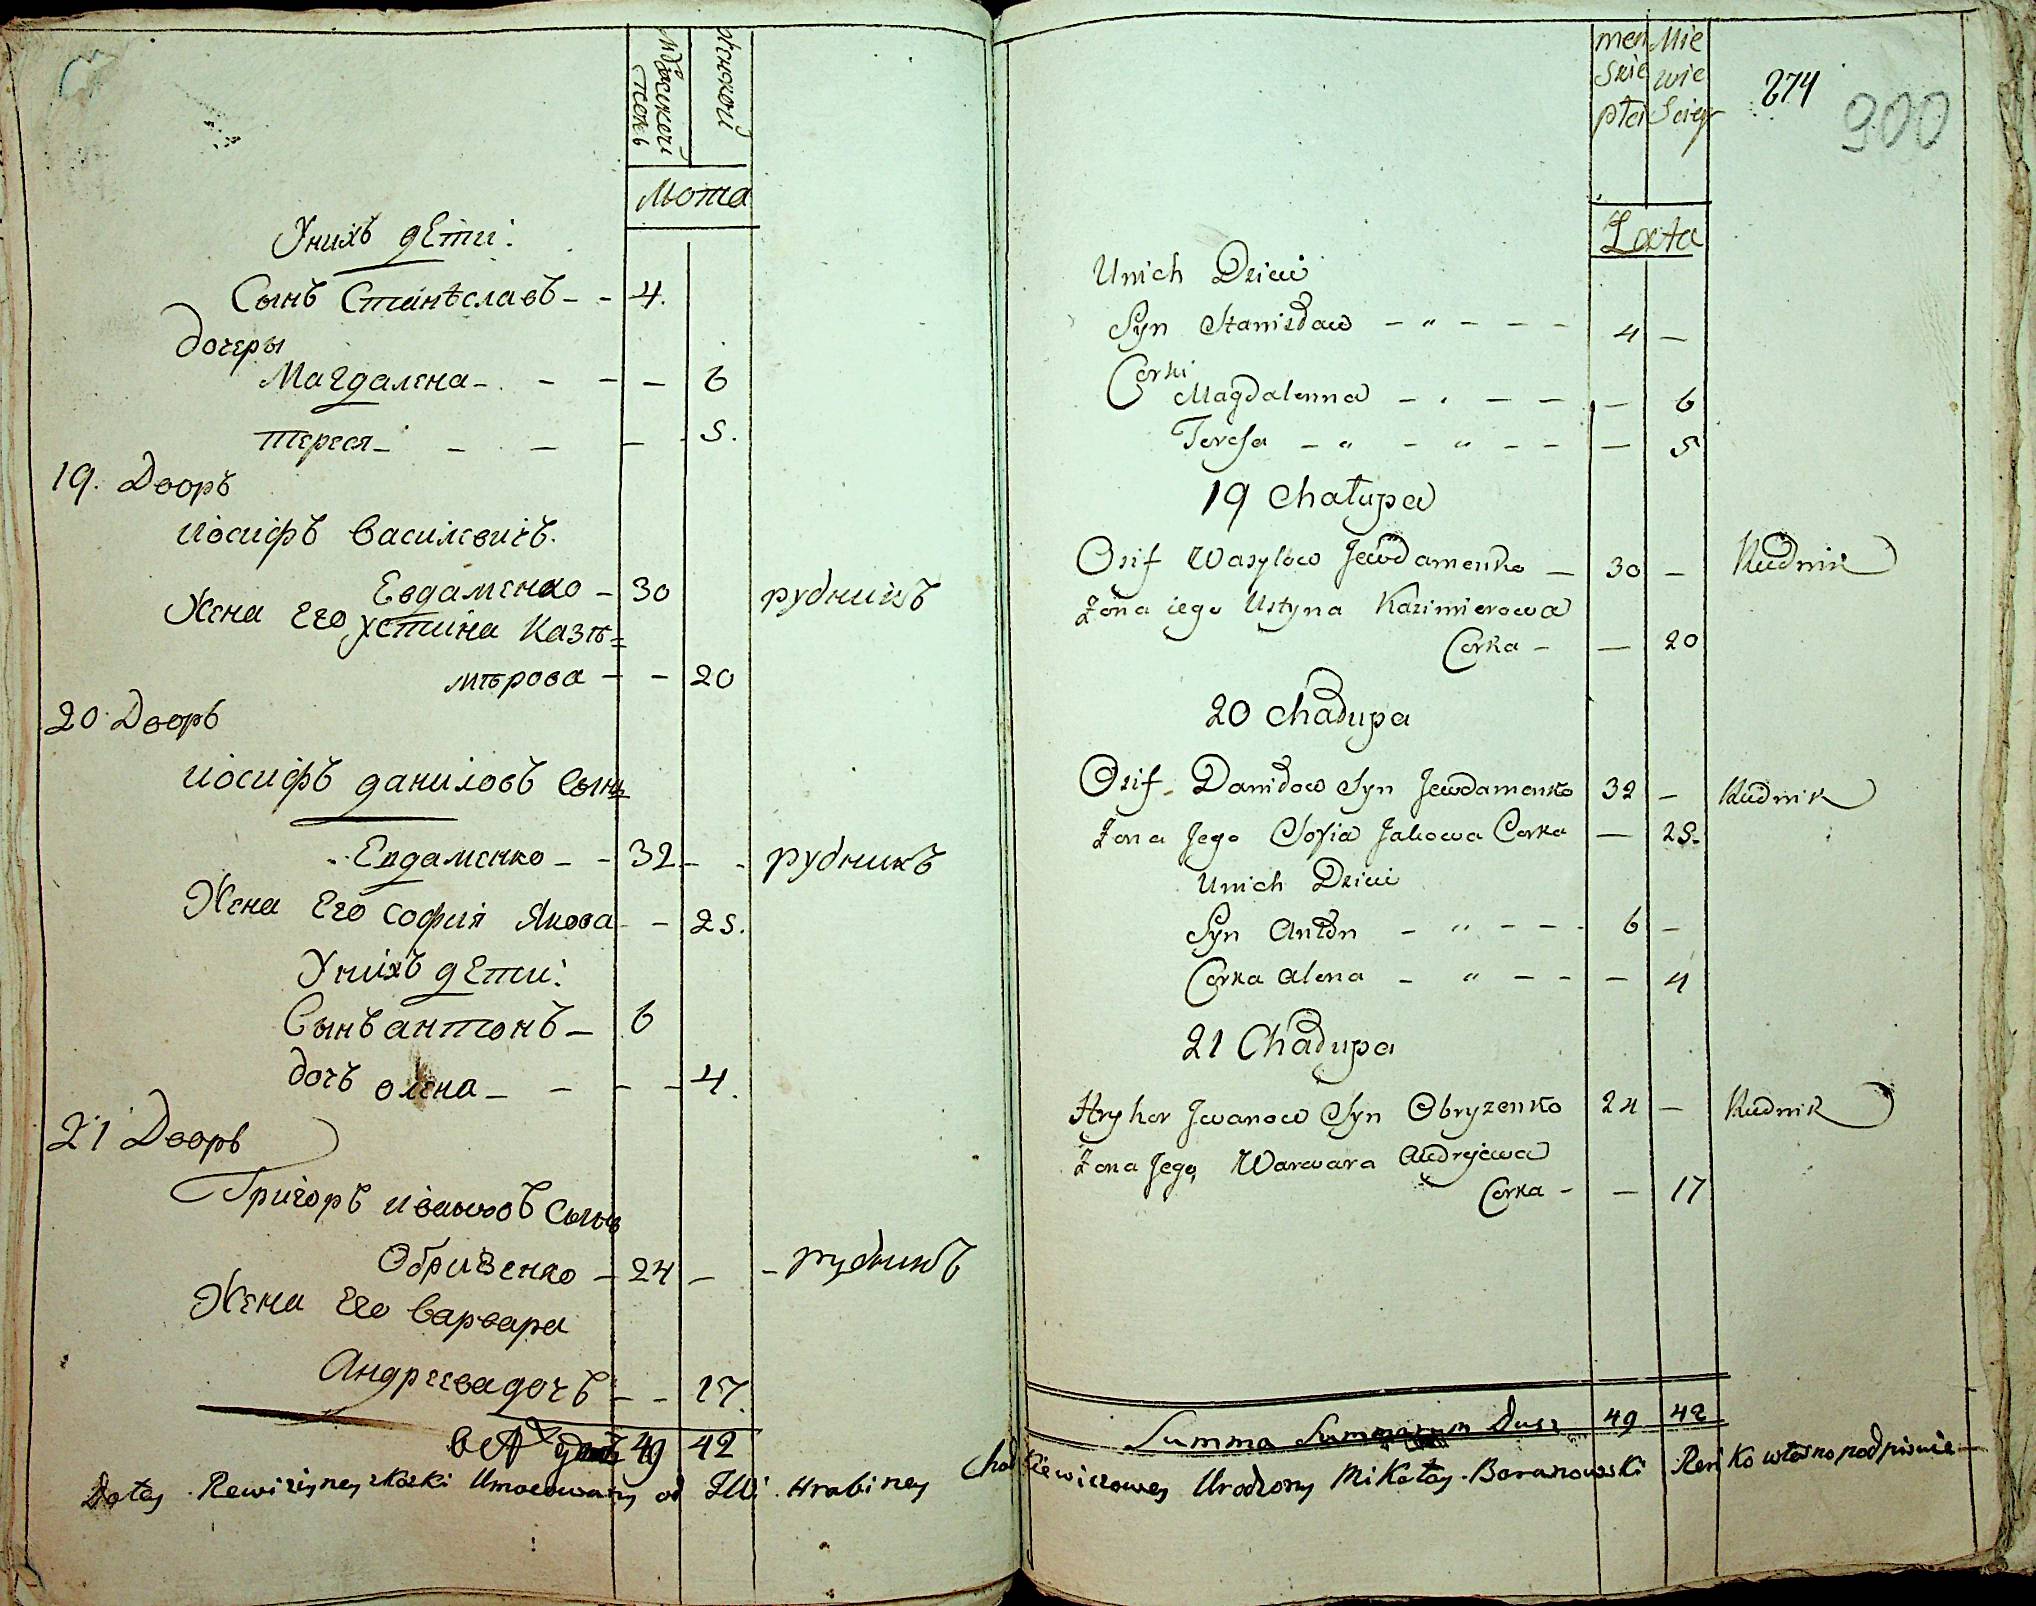 мужескеи
полъ
женской
Лѣта
Унихъ дѣти:
Сынъ Станѣславъ - - 4.
дочеры
Магдалена - - - - 6
тереся - - - - 5.
19. Дворъ
Иосифъ Василевичъ.
Евдаменко - 30 рудникъ
Жена Его Устина Казѣ=
мѣрова - - 20
20 Дворъ
Иосифъ даниловъ Сынъ
Евдаменко - - 32 - - рудникъ
Жена Его София Якова - - 25.
Унихъ дѣти:
Сынъ антонъ - 6
дочъ олена - - - - 4.
21 Дворъ
Григоръ Ивановъ Сынъ
Обризенко - 24 - - рудникъ
Жена Его Варвара
Андреева дочъ - - 17.
49 42
Do tey Rewizyney skaski Umocowany od JW. Hrabiney
men Nie
skie wie
płci Sciey
274
900
Lata
Unich Dzieci
Syn Stanisław - " - - - 4 -
Corki
Magdalenna - . - - - 6
Teresa - " - " - - - 5
19 Chałupa
Osif Wasylow Jewdamenko - 30 - Rudnik
Żona iego Ustyna Kazimierowa
Corka - - 20
20 Chałupa
Osif Daniłow Syn Jewdamenko 32 - Rudnik
Żona Jego Sofia Jakowa Corka - 25.
Unich Dzieci
Syn Anton - " - - - 6 -
Corka Alena - " - - - 4
21 Chałupa
Hryhor Jwanow Syn Obryzenko 24 - Rudnik
Żona Jego Warwara Andrejewa
Corka - - 17
Summa Summarum Dusz 49 42
Chodkiewiczowey Urodzony Mikołay Baranowski Ręn ko własno podpisuie -